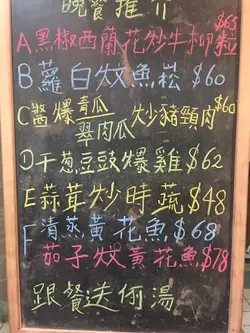 晚餐推介
A黑椒西蘭花炒牛柳粒 $65
B蘿白炆魚崧 $60
C醬爆青瓜翠肉瓜炒豬頸肉 $60
D干葱豆豉爆雞 $62
E蒜茸炒時蔬 $48
F清蒸黃花魚 $68
茄子炆黃花魚 $78
跟餐送例湯